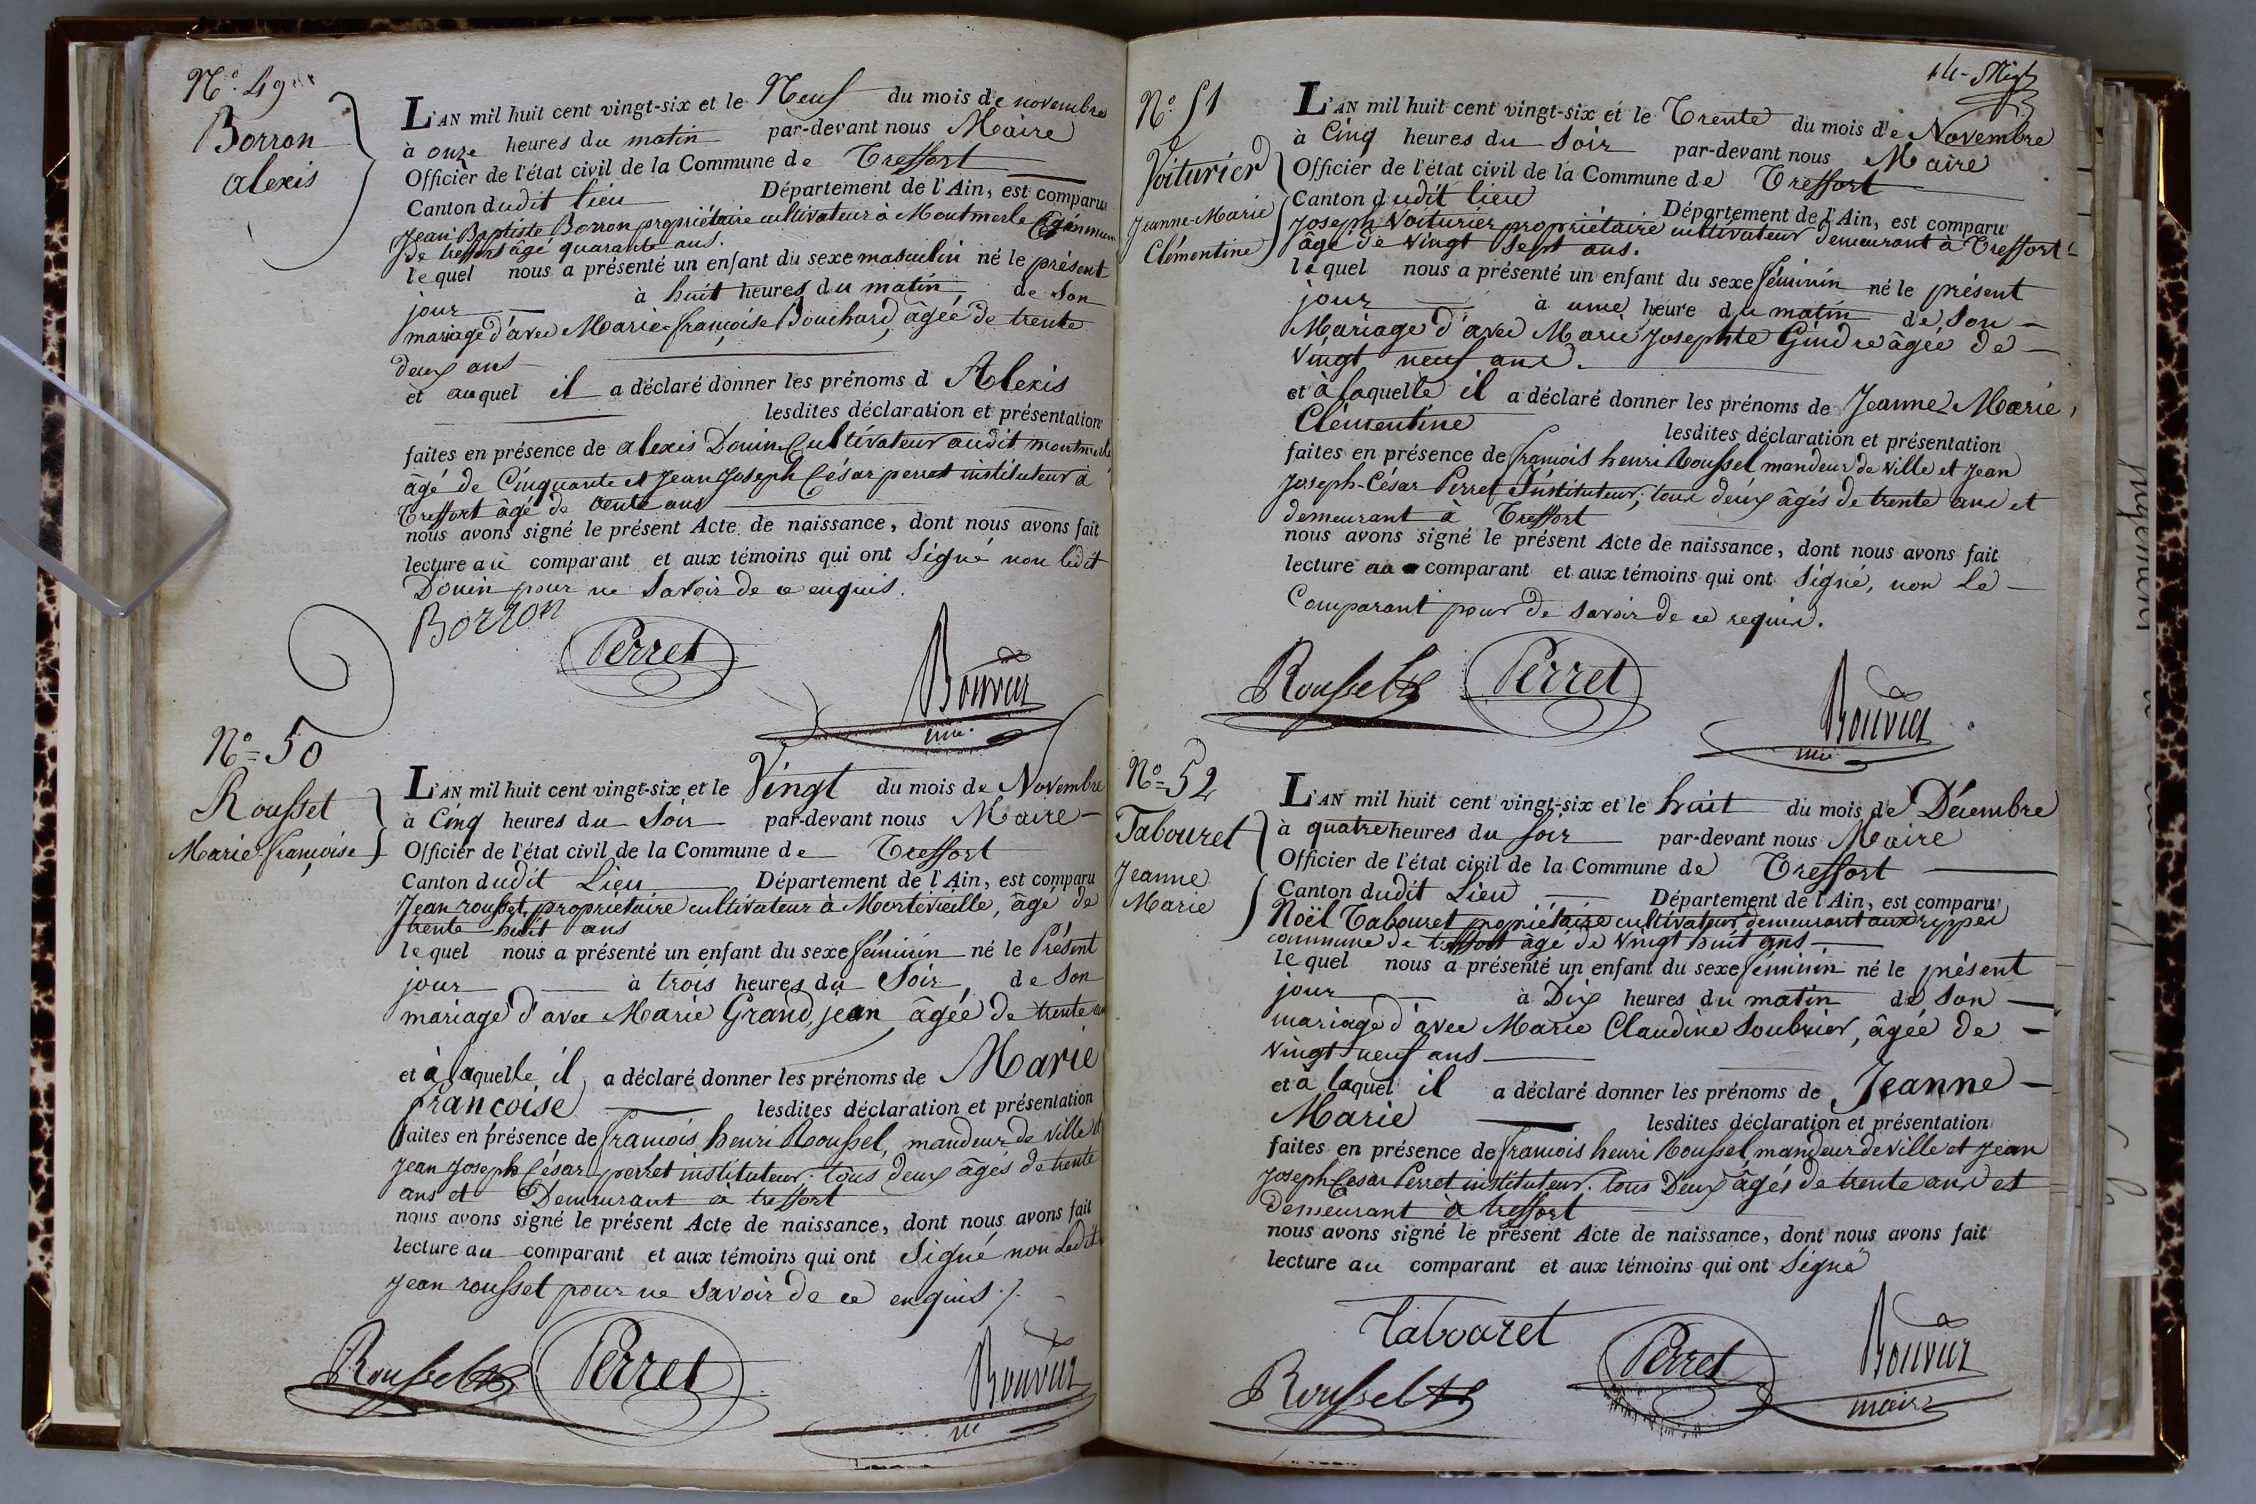 N.° 49
Borron
alexis
L'AN mil huit cent vingt-six et le Neuf du mois de novembre
à onze heures du matin par-devant nous Maire
Officier de l'état civil de la Commune de Treffort
Canton dudit lieu Département de l'Ain, est comparu
Jean Baptiste Borron propriétaire cultivateur à Montmerle
de treffort âgé quarante ans.
lequel nous a présenté un enfant du sexe masculin né le présent
jour à huit heures du matin de son
mariage d'avec Marie françoise Bouchard, âgée de trente
deux ans
et auquel il a déclaré donner les prénoms d Alexis
lesdites déclaration et présentation
faites en présence de alexis Douin Cultivateur audit montmerle
âgé de Cinquante et Jean Joseph César perret instituteur à
Treffort âgé de trente ans
nous avons signé le présent Acte de naissance, dont nous avons fait
lecture au comparant et aux témoins qui ont Signé non ledit
Douin pour ne Savoir de ce enquis.
Borron
Perret
Bouvier
N.° 50
Rousset
Marie françoise
L'AN mil huit cent vingt-six et le Vingt du mois de Novembre
à Cinq heures du Soir par-devant nous Maire
Officier de l'état civil de la Commune de Treffort
Canton dudit Lieu Département de l'Ain, est comparu
Jean rousset, propriétaire cultivateur à Mortevieille, âgé de
trente huit ans
lequel nous a présenté un enfant du sexe féminin né le Présent
jour à trois heures du Soir, de Son
mariage d'avec Marie Grand jean âgée de trente
et à laquelle il a déclaré donner les prénoms de Marie
françoise lesdites déclaration et présentation
faites en présence de francois henri Roussel, mandeur de Ville et
Jean Joseph César perret instituteur, tous deux âgés de trente
ans et Demeurant à treffort
nous avons signé le présent Acte de naissance, dont nous avons fait
lecture au comparant et aux témoins qui ont Signé non Ledit
Jean rousset pour ne Savoir de ce enquis./.
Roussel
Perret
Bouvier
14-
N.° 51
Voiturier
Jeanne-Marie
Clémentine
L'AN mil huit cent vingt-six et le Trente du mois de Novembre
à Cinq heures du Soir par-devant nous Maire
Officier de l'état civil de la Commune de Treffort
Canton dudit lieu Département de l'Ain, est comparu
Joseph Voiturier propriétaire cultivateur demeurant à Treffort
âgé de vingt Sept ans.
lequel nous a présenté un enfant du sexe féminin né le présent
jour à une heure du matin de Son
Mariage d'avec Marie Josephte Gindre âgée de
Vingt neuf ans.
et à laquelle il a déclaré donner les prénoms de Jeanne Marie
Clémentine lesdites déclaration et présentation
faites en présence de francois henri Roussel mandeur de Ville et Jean
Joseph-César Perret Instituteur, tous deux âgés de trente ans et
demeurant à Treffort
nous avons signé le présent Acte de naissance, dont nous avons fait
lecture au comparant et aux témoins qui ont Signé, non Le
Comparant pour de Savoir de ce requis.
Roussel
Perret
Bouvier
N.° 52
Tabouret
Jeanne
Marie
L'AN mil huit cent vingt-six et le huit du mois de Décembre
à quatre heures du Soir par-devant nous Maire
Officier de l'état civil de la Commune de Treffort
Canton dudit Lieu Département de l'Ain, est comparu
Noël Tabouret propriétaire cultivateur demeurant aux rippes
commune de treffort âgé de vingt huit ans
lequel nous a présenté un enfant du sexe féminin né le présent
jour à Dix heures du matin de Son
mariage d'avec Marie Claudine Soubrier, âgée de
Vingt neuf ans
et à laquel il a déclaré donner les prénoms de Jeanne
Marie lesdites déclaration et présentation
faites en présence de francois henri Roussel, mandeur de Ville et Jean
Joseph Cesar Perret instituteur. tous Deux âgés de trente ans et
Demeurant à treffort
nous avons signé le présent Acte de naissance, dont nous avons fait
lecture au comparant et aux témoins qui ont Signé
Tabouret
Roussel
Perret
Bouvier
maire